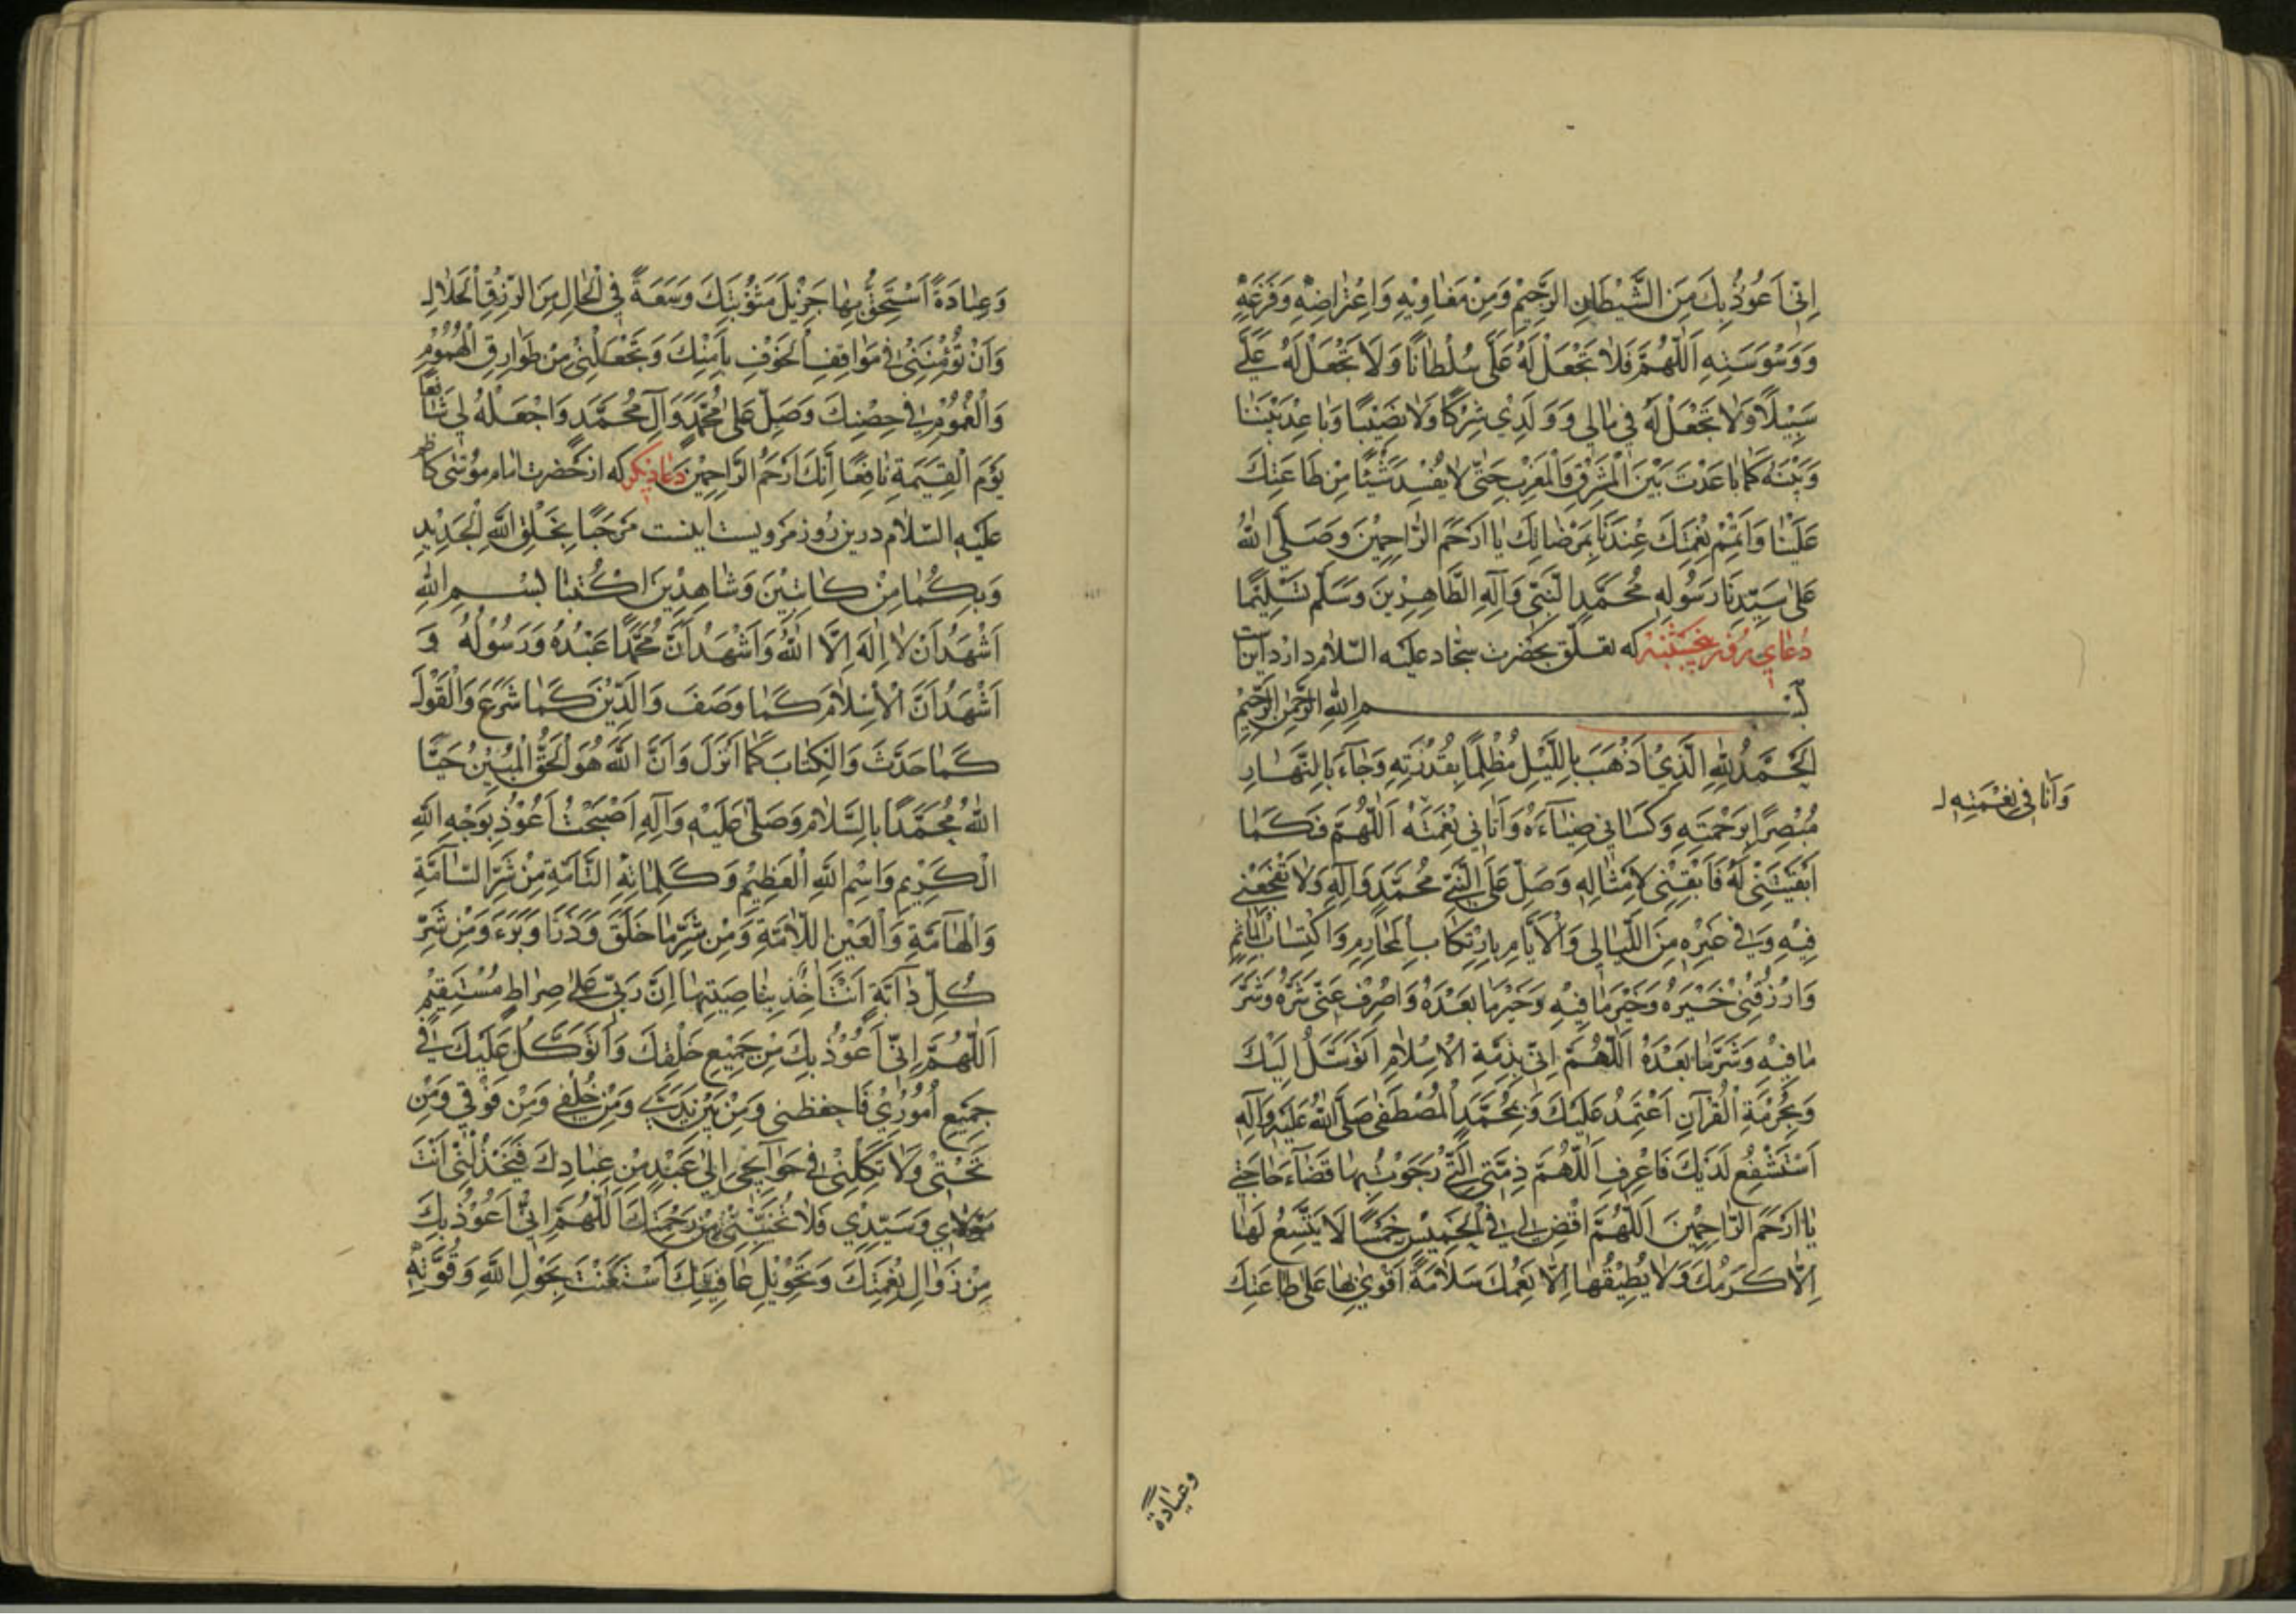 اِنّي اَعُوذُ بِكَ مِنَ الشَّيْطانِ الرَّجيمِ وَمِنْ مَغاوِيهِ وَاِعْتِراضِهِ وَفَزَعِهِ
وَوَسْوَسَتِهِ اَللّهُمَّ فَلا تَجْعَلْ لَهُ عَلَيَّ سُلْطانًا وَلا تَجْعَلْ لَهُ عَلَيَّ
سَبِيلًا وَلا تَجْعَلْ لَهُ في مالي وَوَلَدِي شِرْكًا وَلا نَصِيبًا وَباعِدْ بَيْنَنا
وَبَيْنَهُ كَما باعَدْتَ بَيْنَ الْمَشْرِقِ وَالْمَغْرِبِ حَتّى لا يُفْسِدَ شَيْئًا مِنْ طاعَتِكَ
عَلَيْنا وَاَتْمِمْ نِعْمَتَكَ عِنْدَنا بِمَرْضاتِكَ يا اَرْحَمَ الرّاحِمِينَ وَصَلَّى اللهُ
عَلى سَيِّدِنا رَسُولِهِ مُحَمَّدٍ النَّبِيِّ وَآلِهِ الطّاهِرِينَ وَسَلَّمَ تَسْلِيمًا
دُعاي روز پنجشنبه كه تعلّق بحضرت سجّاد عليه السّلام دارد اين است
بِسْمِ اللهِ الرَّحْمنِ الرَّحِيمِ
اَلْحَمْدُ لِلّهِ الَّذِي اَذْهَبَ بِاللَّيْلِ مُظْلِمًا بِقُدْرَتِهِ وَجاءَ بِالنَّهارِ
مُبْصِرًا بِرَحْمَتِهِ وَكَسانِي ضِياءَهُ وَاَتانِي نِعْمَتَهُ اَللّهُمَّ فَكَما
وَاَنا في نِعْمَتِهِ ل
اَبْقَيْتَنِي لَهُ فَاَبْقِنِي لِاَمْثالِهِ وَصَلِّ عَلَى النَّبِيِّ مُحَمَّدٍ وَآلِهِ وَلا تَفْجَعْنِي
فِيهِ وَفي غَيْرِهِ مِنَ اللَّيالِي وَالْاَيّامِ بِارْتِكابِ الْمَحارِمِ وَاكْتِسابِ الْمَآثِمِ
وَارْزُقْنِي خَيْرَهُ وَخَيْرَ ما فِيهِ وَخَيْرَ ما بَعْدَهُ وَاصْرِفْ عَنّي شَرَّهُ وَشَرَّ
ما فِيهِ وَشَرَّ ما بَعْدَهُ اَللّهُمَّ اِنّي بِذِمَّةِ الْاِسْلامِ اَتَوَسَّلُ اِلَيْكَ
وَبِحُرْمَةِ الْقُرْآنِ اَعْتَمِدُ عَلَيْكَ وَبِمُحَمَّدٍ الْمُصْطَفى صَلَّى اللهُ عَلَيْهِ وَآلِهِ
اَسْتَشْفِعُ لَدَيْكَ فَاعْرِفِ اَللّهُمَّ ذِمَّتِي الَّتِي رَجَوْتُ بِها قَضاءَ حاجَتِي
يا اَرْحَمَ الرّاحِمِينَ اَللّهُمَّ اقْضِ لي فِي الْخَمِيسِ خَمْسًا لا يَتَّسِعُ لَها
اِلّا كَرَمُكَ وَلا يُطِيقُها اِلّا نِعَمُكَ سَلامَةً اَقْوى بِها عَلى طاعَتِكَ
وعبادةً
وَعِبادَةً اَسْتَحِقُّ بِها جَزِيلَ مَثُوبَتِكَ وَسَعَةً فِي الْحالِ مِنَ الرِّزْقِ الْحَلالِ
وَاَنْ تُؤْمِنَنِي في مَواقِفِ الْخَوْفِ بِاَمْنِكَ وَتَجْعَلَنِي مِنْ طَوارِقِ الْهُمُومِ
وَالْغُمُومِ في حِصْنِكَ وَصَلِّ عَلى مُحَمَّدٍ وَآلِ مُحَمَّدٍ وَاجْعَلْهُ لي شافِعًا
يَوْمَ الْقِيمَةِ نافِعًا اِنَّكَ اَرْحَمُ الرّاحِمِينَ دعاء ديكر كه از حضرت امام موسى كاظم
عليه السّلام درين روز مرويست اينست مَرْحَبًا بِخَلْقِ اللهِ الْجَدِيدِ
وَبِكُما مِنْ كاتِبَيْنِ وَشاهِدَيْنِ اكْتُبا بِسْمِ اللهِ
اَشْهَدُ اَنْ لا اِلهَ اِلَّا اللهُ وَاَشْهَدُ اَنَّ مُحَمَّدًا عَبْدُهُ وَرَسُولُهُ وَ
اَشْهَدُ اَنَّ الْاِسْلامَ كَما وَصَفَ وَالدِّينَ كَما شَرَعَ وَالْقَوْلَ
كَما حَدَّثَ وَالْكِتابَ كَما اَنْزَلَ وَاَنَّ اللهَ هُوَ الْحَقُّ الْمُبِينُ حَيَّا
اللهُ مُحَمَّدًا بِالسَّلامِ وَصَلّى عَلَيْهِ وَآلِهِ اَصْبَحْتُ اَعُوذُ بِوَجْهِ اللهِ
الْكَرِيمِ وَاسْمِ اللهِ الْعَظِيمِ وَكَلِماتِهِ التّامَّةِ مِنْ شَرِّ السّامَّةِ
وَالْهامَّةِ وَالْعَيْنِ اللّامَّةِ وَمِنْ شَرِّ ما خَلَقَ وَذَرَأَ وَبَرَءَ وَمِنْ شَرِّ
كُلِّ دابَّةٍ اَنْتَ آخِذٌ بِناصِيَتِها اِنَّ رَبّي عَلى صِراطٍ مُسْتَقِيمٍ
اَللّهُمَّ اِنّي اَعُوذُ بِكَ مِنْ جَمِيعِ خَلْقِكَ وَاَتَوَكَّلُ عَلَيْكَ في
جَمِيعِ اُمُورِي فَاحْفَظْنِي وَمِنْ بَيْنِ يَدَيَّ وَمِنْ خَلْفِي وَمِنْ فَوْقِي وَمِنْ
تَحْتِي وَلا تَكِلْنِي في حَوائِجِي اِلى عَبْدٍ مِنْ عِبادِكَ فَيَخْذُلَنِي اَنْتَ
مَوْلايَ وَسَيِّدِي فَلا تُخَيِّبْنِي مِنْ رَحْمَتِكَ اَللّهُمَّ اِنّي اَعُوذُ بِكَ
مِنْ زَوالِ نِعْمَتِكَ وَتَحْوِيلِ عافِيَتِكَ اسْتَعَنْتُ بِحَوْلِ اللهِ وَقُوَّتِهِ